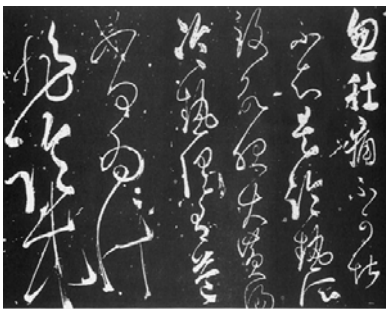 忽肚痛不可堪
不知是冷熱所
致欲服大黃湯
冷熱俱有益
如何為計
非臨床